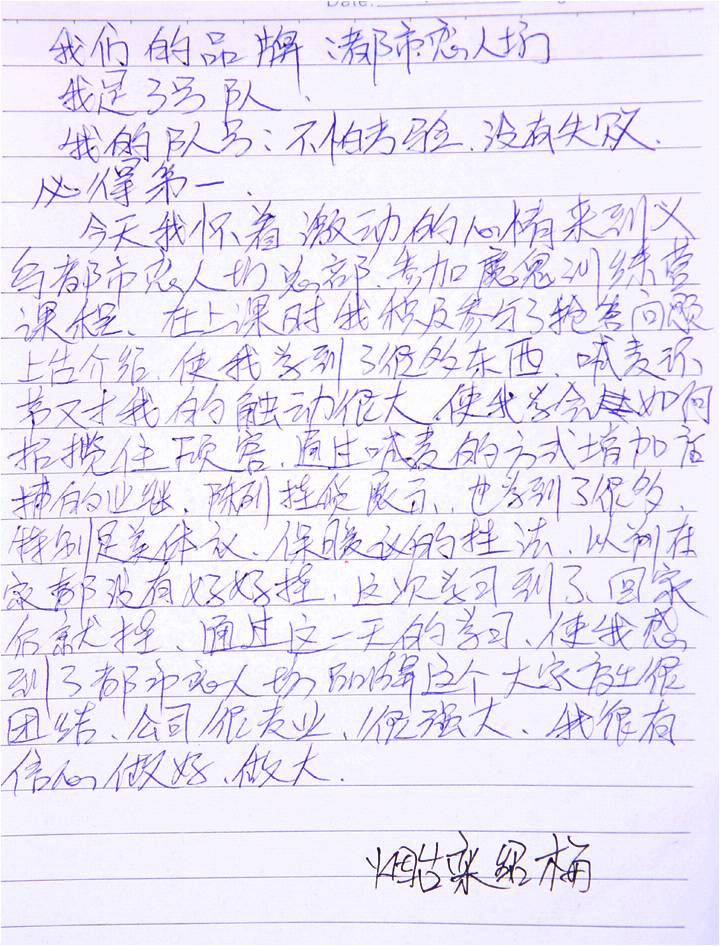 Date:
我们的品牌:都市恋人坊
我是3号队.
我的队号:不怕考验、没有失败、
必得第一.
今天我怀着激动的心情来到义
乌都市恋人坊总部.参加魔鬼训练营
课程、在上课时我积及参与了抢答问题
上台介绍.使我学到了很多东西、喊麦环
节又才我的触动很大.使我学会如何
招揽住顾客、通过喊麦的方式增加店
铺的业继、陈列挂墙展示、也学到了很多、
特别是美体衣、保暖衣的挂法、以前在
家都没有好好挂、这次学习到了、回家
后就挂、通过这一天的学习、使我感
到了都市恋人坊品牌这个大家庭很
团结、公司很专业、很强大、我很有
信心做好、做大.
烟台栾绍梅